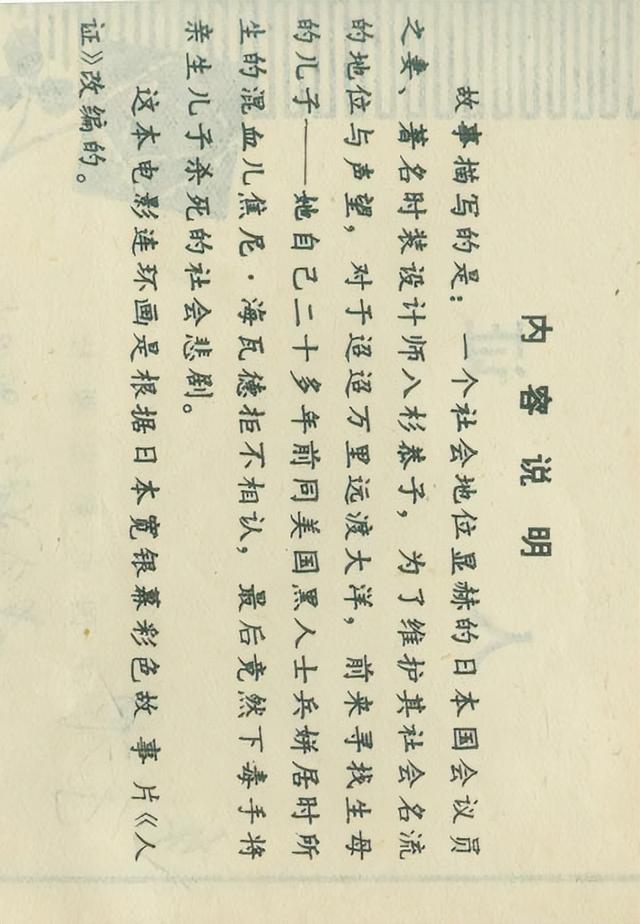 内容说明
故事描写的是：一个社会地位显赫的日本国会议员
之妻、著名时装设计师八杉恭子，为了维护其社会名流
的地位与声望，对于迢迢万里远渡大洋，前来寻找生母
的儿子——她自己二十多年前同美国黑人士兵姘居时所
生的混血儿焦尼·海瓦德拒不相认，最后竟然下毒手将
亲生儿子杀死的社会悲剧。
这本电影连环画是根据日本宽银幕彩色故事片《人
证》改编的。